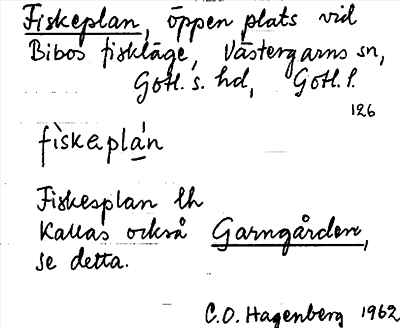 Fiskeplan, öppen plats vid
Bibos fiskläge, Västergarns sn,
Gotl. s. hd, Gotl. l.
126
fìskeplá̱n
Fiskesplan lh
Kallas också Garngården,
se detta.
C.O. Hagenberg 1962